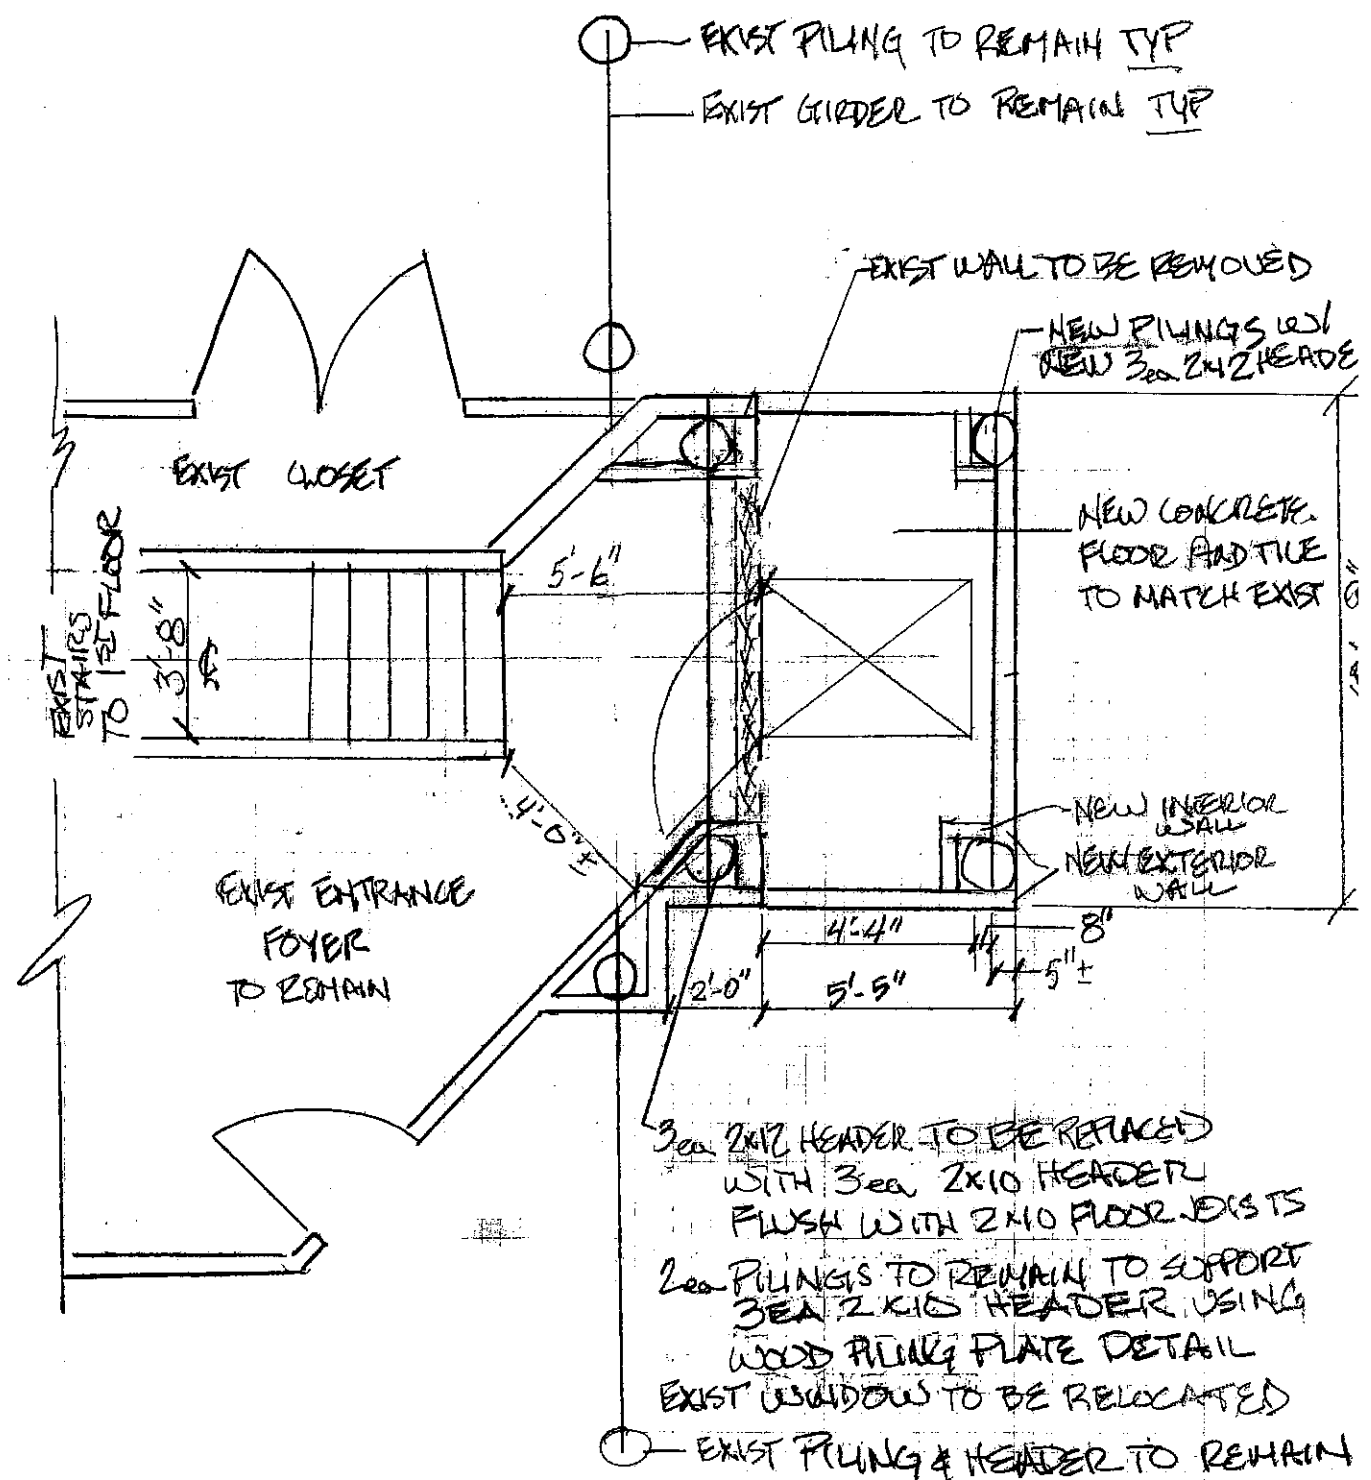 EXIST PILING TO REMAIN TYP
EXIST GIRDER TO REMAIN TYP
EXIST WALL TO BE REMOVED
NEW PILINGS W/
NEW 3ea 2x12 HEADE
EXIST CLOSET
NEW CONCRETE
FLOOR AND TILE
TO MATCH EXIST
EXIST
STAIRS
TO 1ST FLOOR
3'-8"
5'-6"
4'-0" ±
NEW INTERIOR
WALL
NEW EXTERIOR
WALL
EXIST ENTRANCE
FOYER
TO REMAIN
4'-4"
8"
5" ±
2'-0"
5'-5"
3ea 2x12 HEADER TO BE REPLACED
WITH 3ea 2x10 HEADER
FLUSH WITH 2x10 FLOOR JOISTS
2ea PILINGS TO REMAIN TO SUPPORT
3EA 2x10 HEADER USING
WOOD PILING PLATE DETAIL
EXIST WINDOW TO BE RELOCATED
EXIST PILING & HEADER TO REMAIN